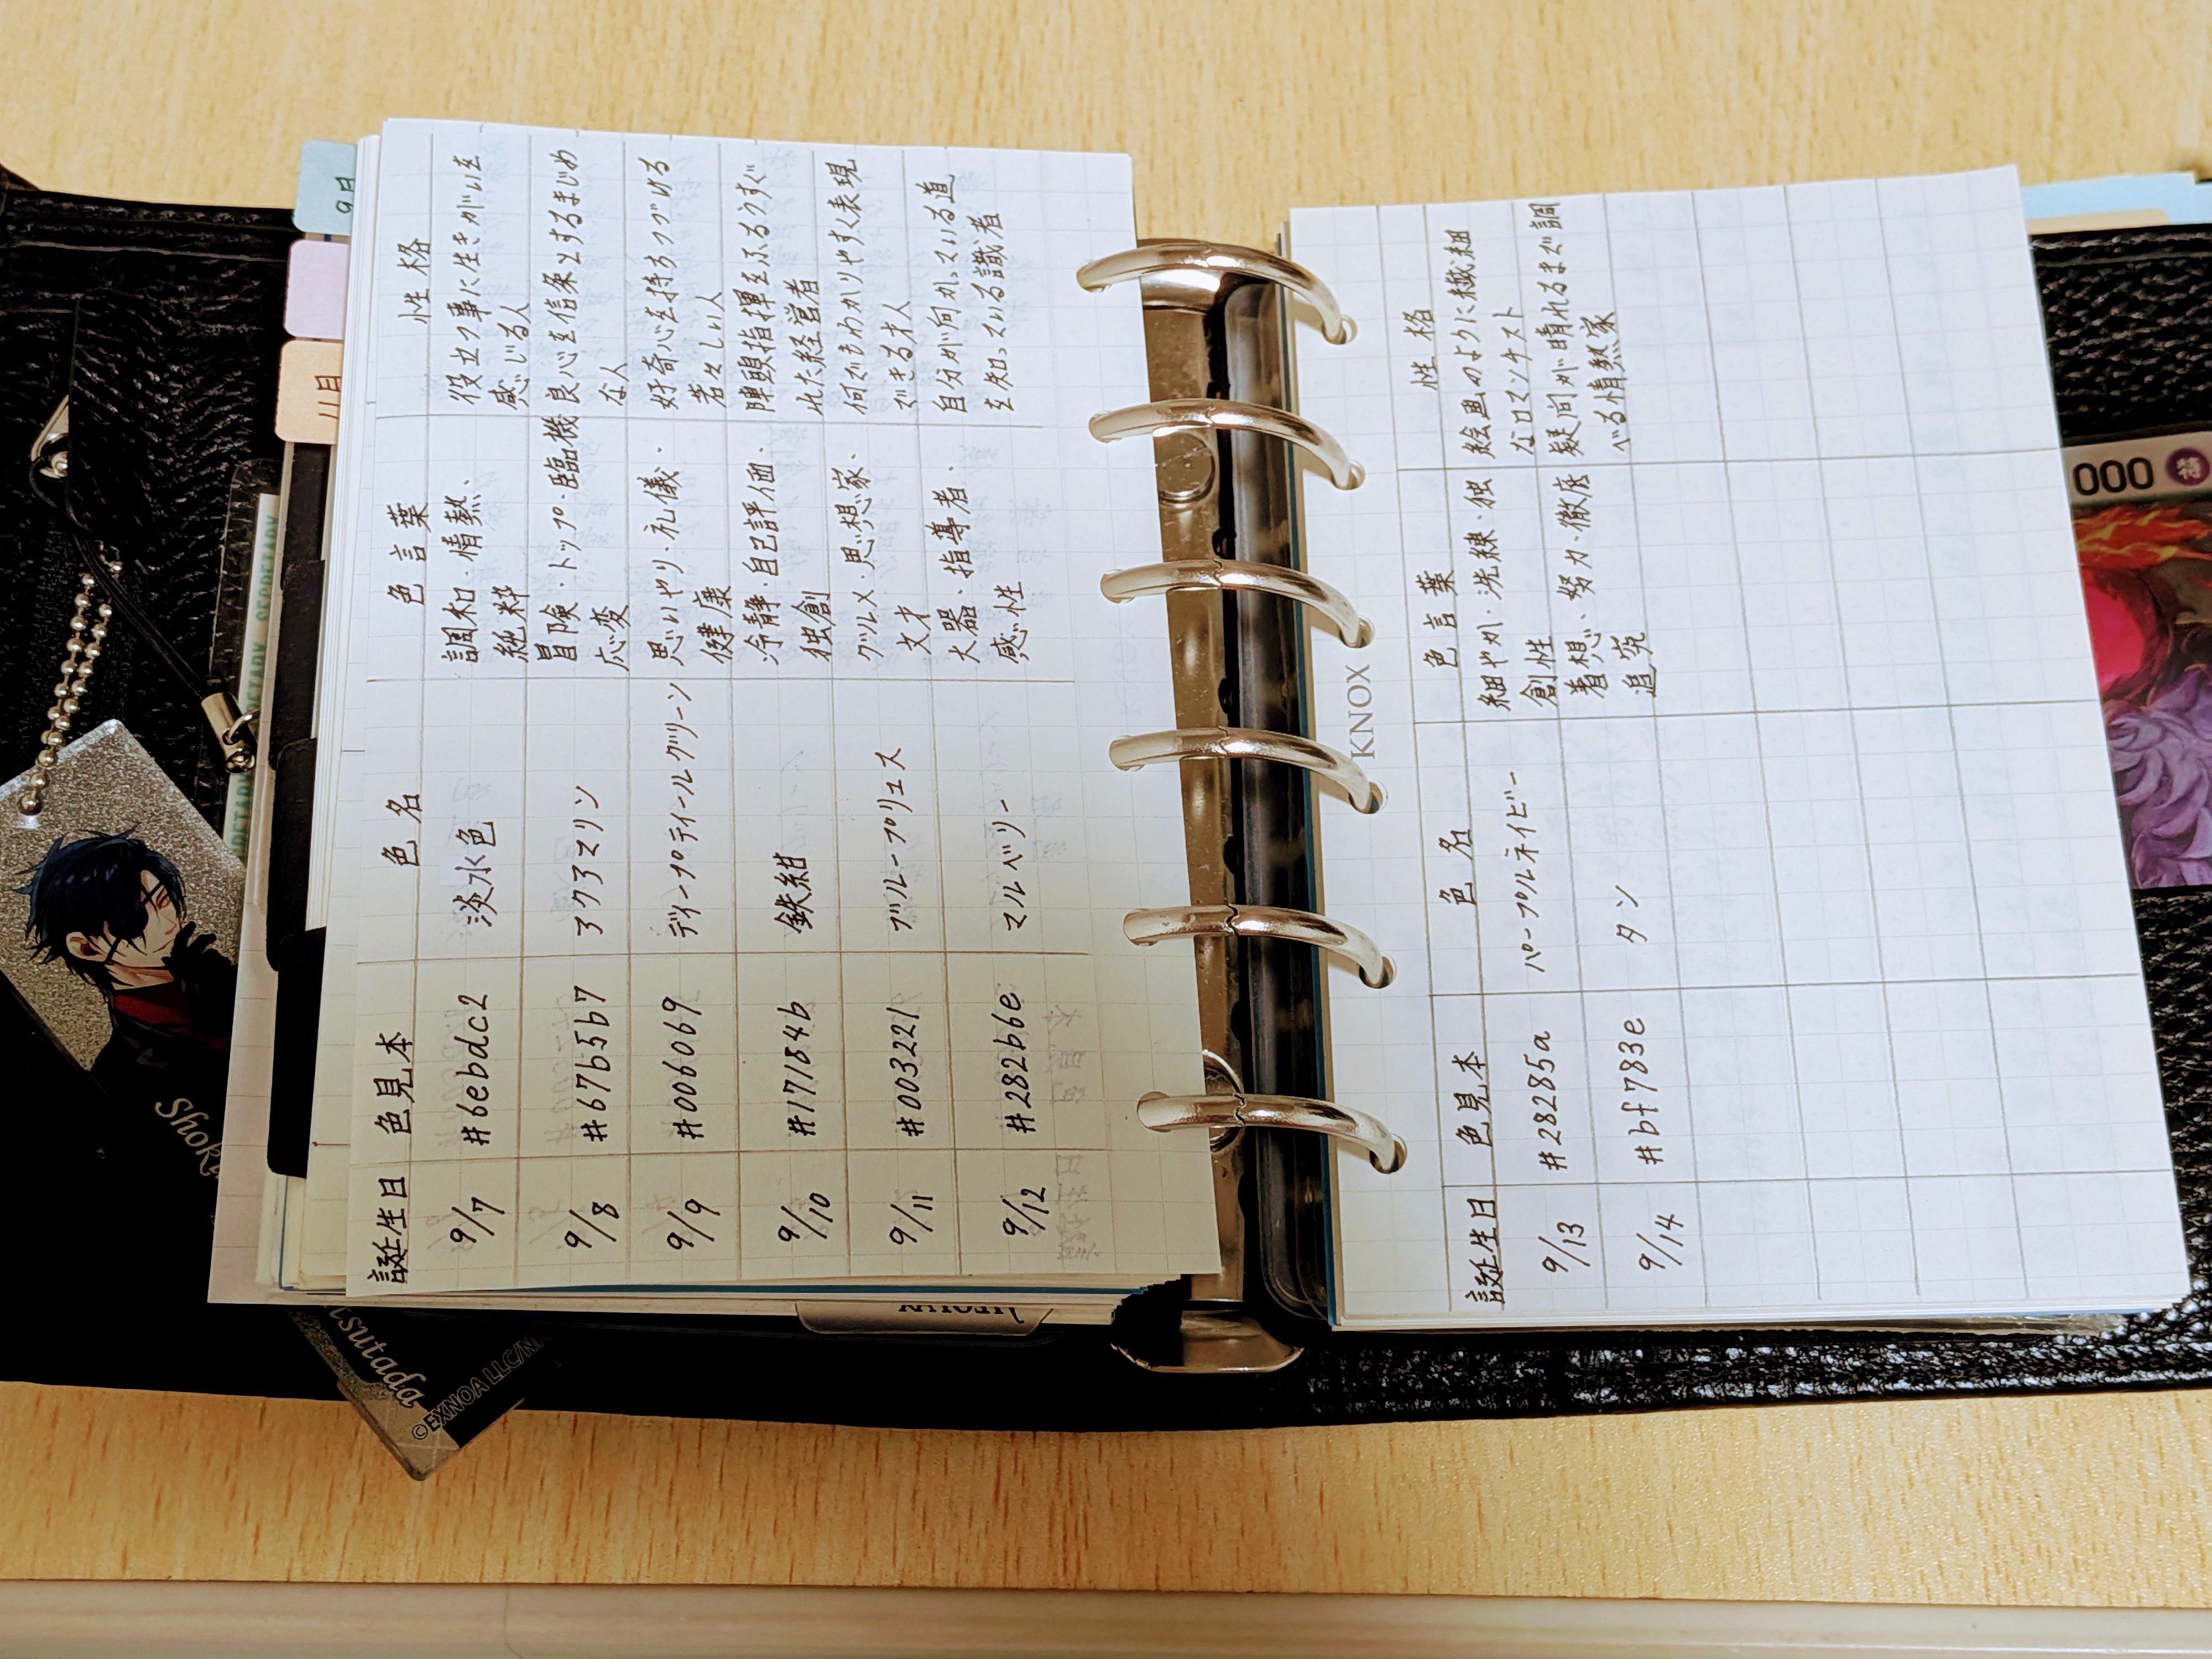 誕生日 色見本 色名 色言葉 性格
9/7 #6ebdc2 淡水色 調和・情熱、 役立つ事に生きがいを
純粋 感じる人
9/8 #67b5b7 アクアマリン 冒険・トップ・臨機 良心を信条とするまじめ
応変 な人
9/9 #006069 ディープティールグリーン 思いやり・礼儀・ 好奇心を持ちつづける
健康 若々しい人
9/10 #17184b 鉄紺 冷静・自己評価・ 陣頭指揮をふるうすぐ
独創 れた経営者
9/11 #003221 ブループリュス グルメ・思想家、 何でもわかりやすく表現
文才 できる才人
9/12 #282b6e マルベリー 大器・指導者・ 自分が何か、っている道
感性 を知っている識者
KNOX
誕生日 色見本 色名 色言葉 性格
9/13 #28285a パープルネイビー 細やか・洗練・独 絵画のように繊細
創性 なロマンチスト
9/14 #bf783e タン 着想、努力・徹底 疑問が晴れるまで調
追究 べる情熱家
9月
11月
000
Shok
tsutada
©EXNOA LLC/N